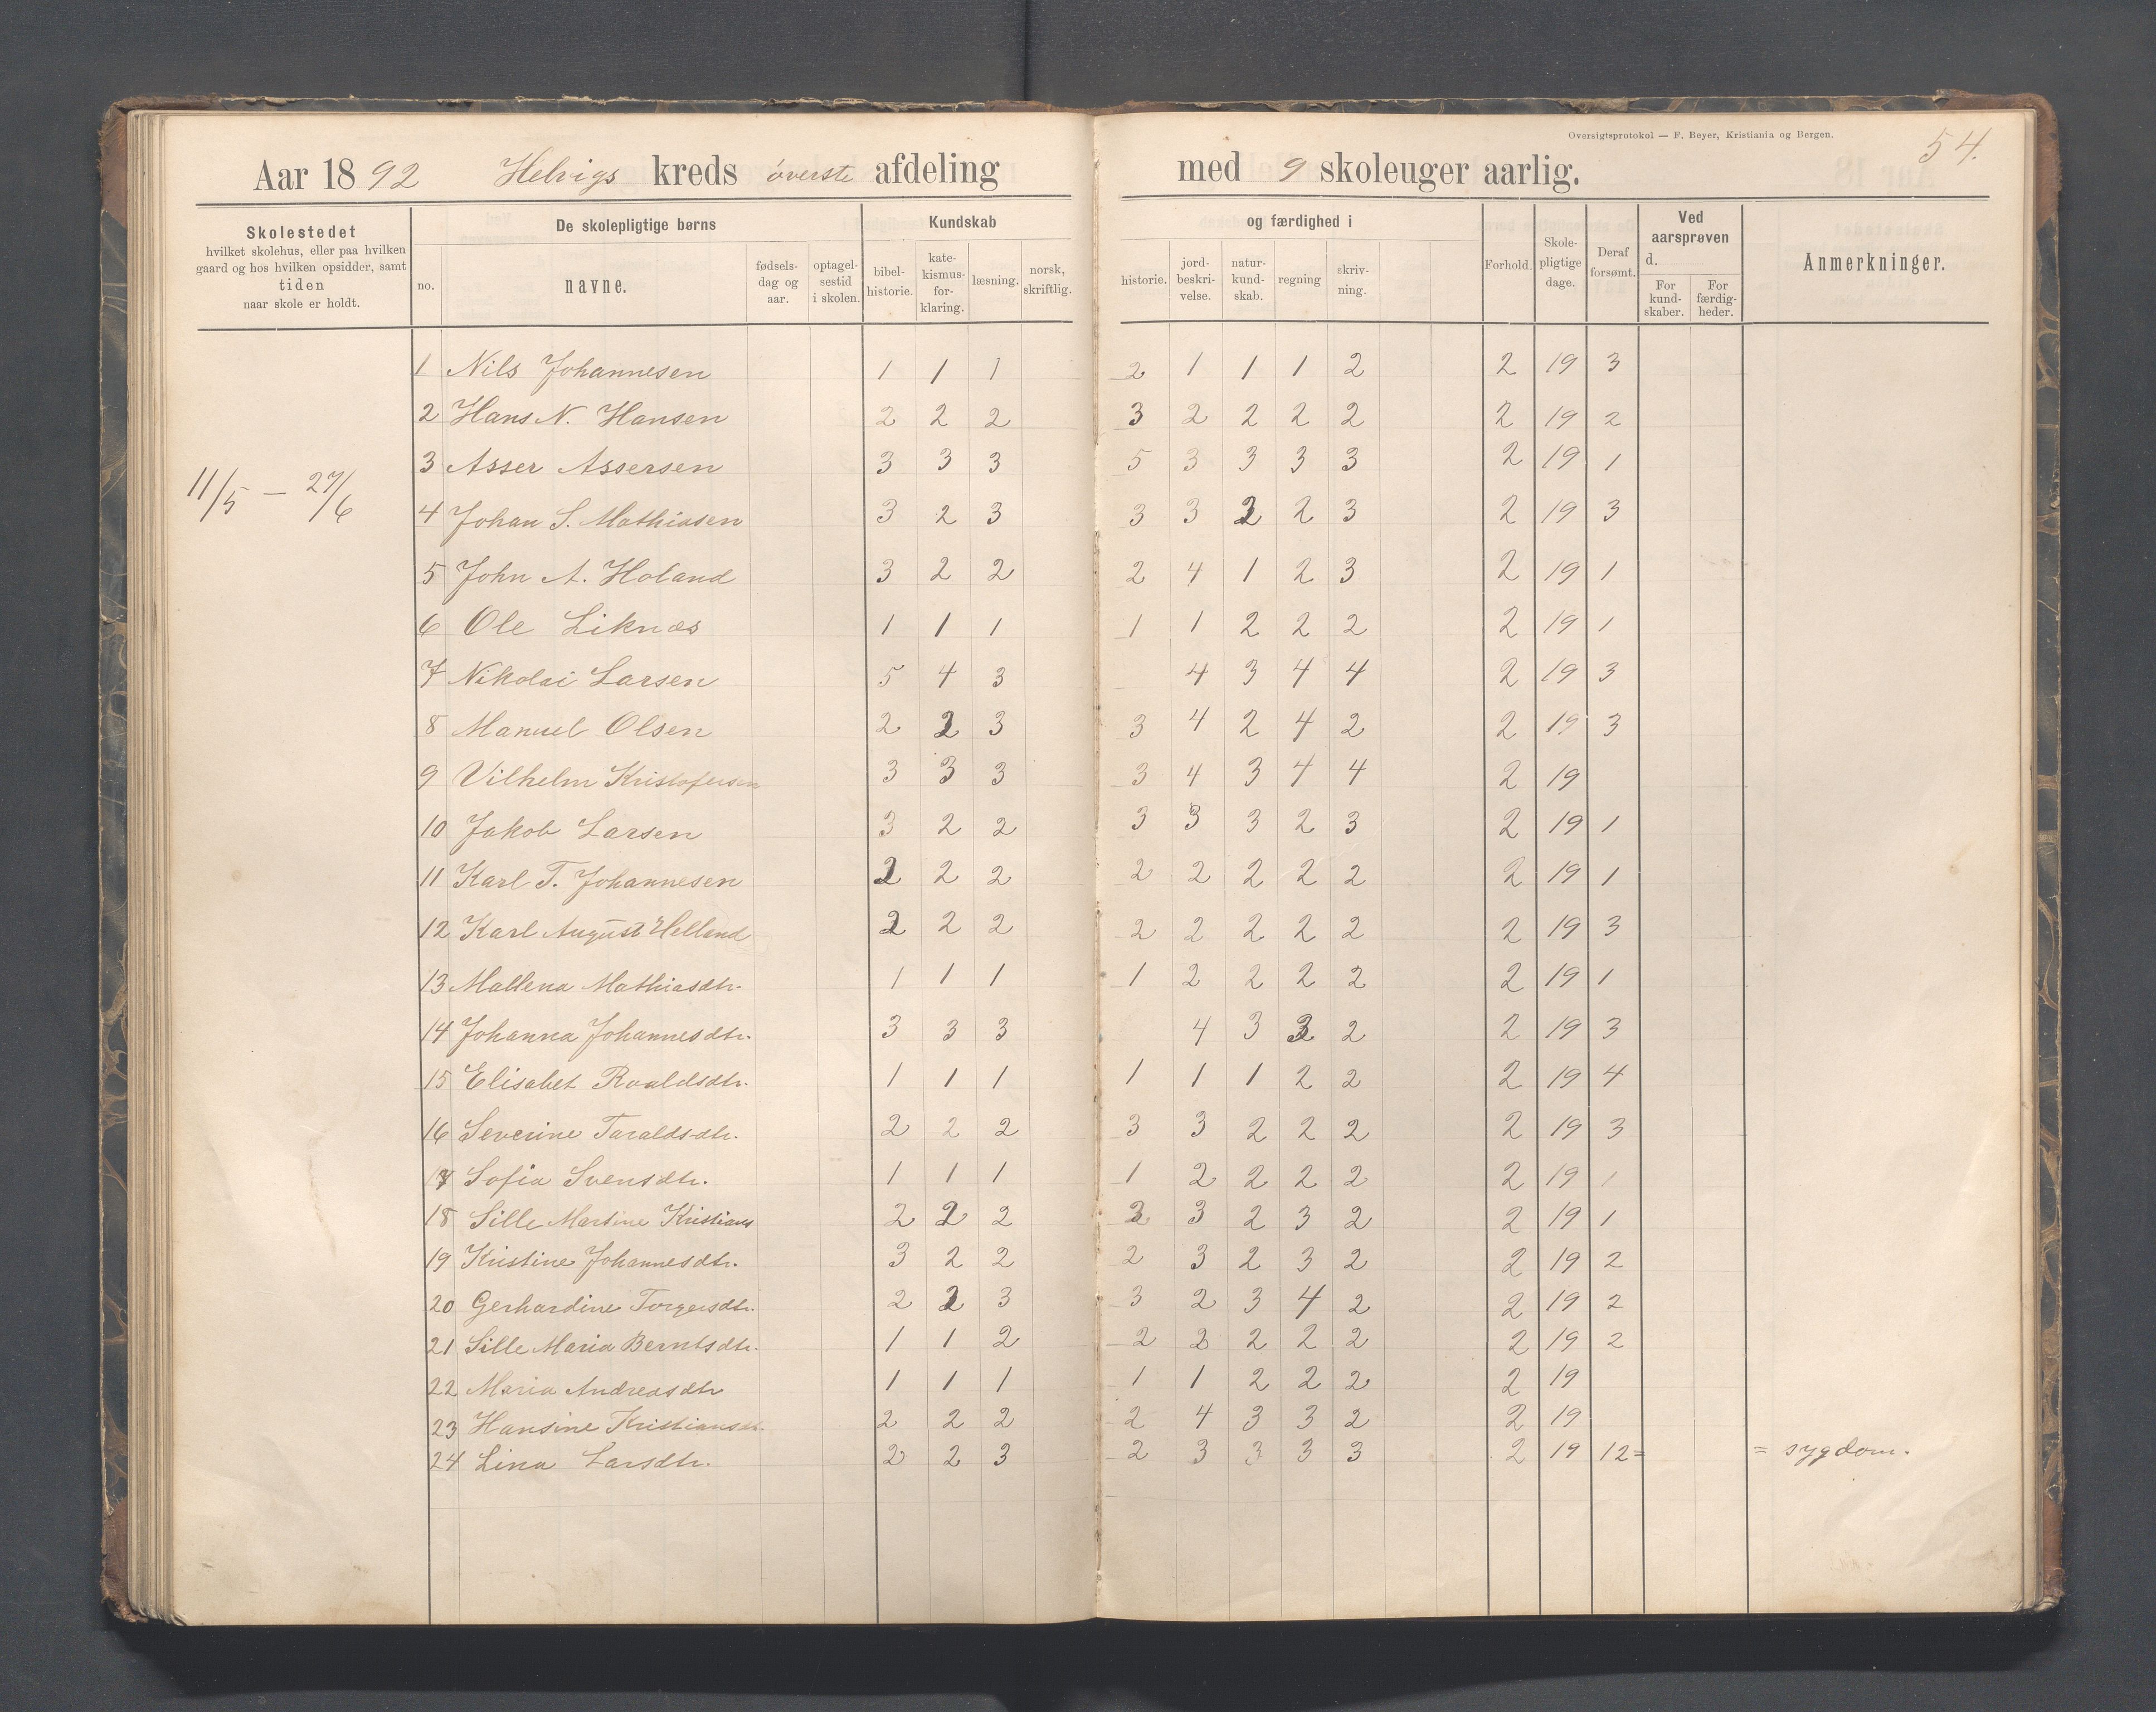 Oversigtsprotokol — F. Beyer, Kristiania og Bergen.
54.
Aar 1892 Helvigs kreds øverste afdeling med 9 skoleuger aarlig.
Skolestedet
hvilket skolehus, eller paa hvilken
gaard og hos hvilken opsidder, samt
tiden
naar skole er holdt.
De skolepligtige børns
no.
navne.
fødsels-
dag og
aar.
optagel-
sestid
i skolen.
Kundskab
bibel-
historie.
kate-
kismus-
for-
klaring.
læsning.
norsk,
skriftlig.
og færdighed i
historie.
jord-
beskri-
velse.
natur-
kund-
skab.
regning
skriv-
ning.
Forhold.
Skole-
pligtige
dage.
Deraf
forsømt.
Ved
aarsprøven
d.
For
kund-
skaber.
For
færdig-
heder.
Anmerkninger.
11/5 — 27/6
1 Nils Johannesen 1 1 1 2 1 1 1 2 2 19 3
2 Hans N. Hansen 2 2 2 3 2 2 2 2 2 19 2
3 Asser Assersen 3 3 3 5 3 3 3 3 2 19 1
4 Johan S. Mathiasen 3 2 3 3 3 2 3 2 19 3
5 John A. Holand 3 2 2 2 4 1 2 3 2 19 1
6 Ole Liknæs 1 1 1 1 1 2 2 2 2 19 1
7 Nikolai Larsen 5 4 3 4 3 4 4 2 19 3
8 Manuel Olsen 2 3 3 4 2 4 2 2 19 3
9 Vilhelm Kristofersen 3 3 3 3 4 3 4 4 2 19
10 Jakob Larsen 3 2 2 3 3 3 2 3 2 19 1
11 Karl T. Johannesen 2 2 2 2 2 2 2 2 2 19 1
12 Karl August Helland 2 2 2 2 2 2 2 2 2 19 3
13 Mallena Mathiasdtr. 1 1 1 1 2 2 2 2 2 19 1
14 Johanna Johannesdtr. 3 3 3 4 3 3 2 2 19 3
15 Elisabet Roaldsdtr. 1 1 1 1 1 1 2 2 2 19 4
16 Severine Taraldsdtr. 2 2 2 3 3 2 2 2 2 19 3
17 Sofia Svensdtr. 1 1 1 1 2 2 2 2 2 19 1
18 Sille Martine Kristians 2 2 2 3 2 3 2 2 19 1
19 Kristine Johannesdtr. 3 2 2 2 3 2 3 2 2 19 2
20 Gerhardine Torgersdtr. 2 2 3 3 2 3 4 2 2 19 2
21 Sille Maria Berntsdtr. 1 1 2 2 2 2 2 2 2 19 2
22 Maria Andreasdtr 1 1 1 1 1 2 2 2 2 19
23 Hansine Kristiansdtr. 2 2 2 2 4 3 3 2 2 19
24 Lina Larsdtr. 2 2 3 2 3 3 3 3 2 19 12= = sygdom.